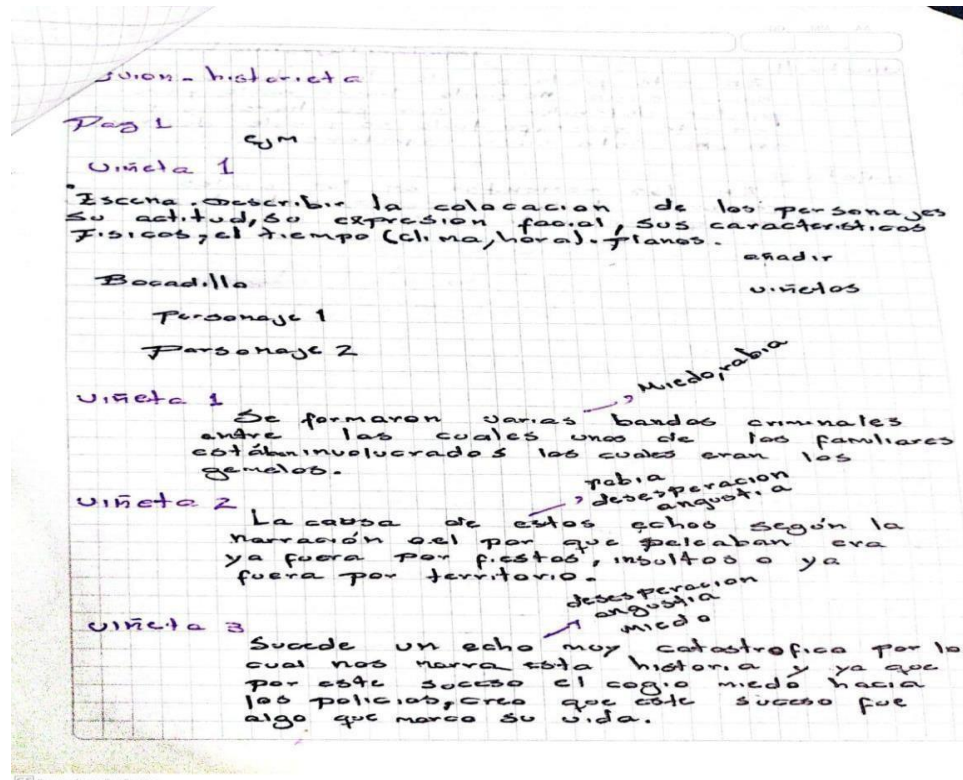 Guion - historieta
Pag 1
Ejm
viñeta 1
Escena. Describir la colocacion de los personajes
su actitud, su expresion facial, sus caracteristicas
Fisicas, el tiempo (clima, hora). Planos.
añadir
viñetas
Bocadillo
Personaje 1
Personaje 2
Miedo, rabia
viñeta 1
Se formaron varias bandas criminales
entre las cuales unos de los familiares
estában involucrados los cuales eran los
gemelos.
rabia
desesperacion
angustia
viñeta 2
La causa de estos echos según la
narración del por que peleaban era
ya fuera por fiestas, insultos o ya
fuera por territorio.
desesperacion
angustia
miedo
viñeta 3
Sucede un echo muy catastrofico por lo
cual nos narra esta historia y ya que
por este suceso el cogio miedo hacia
los policias, creo que este suceso fue
algo que marco su vida.